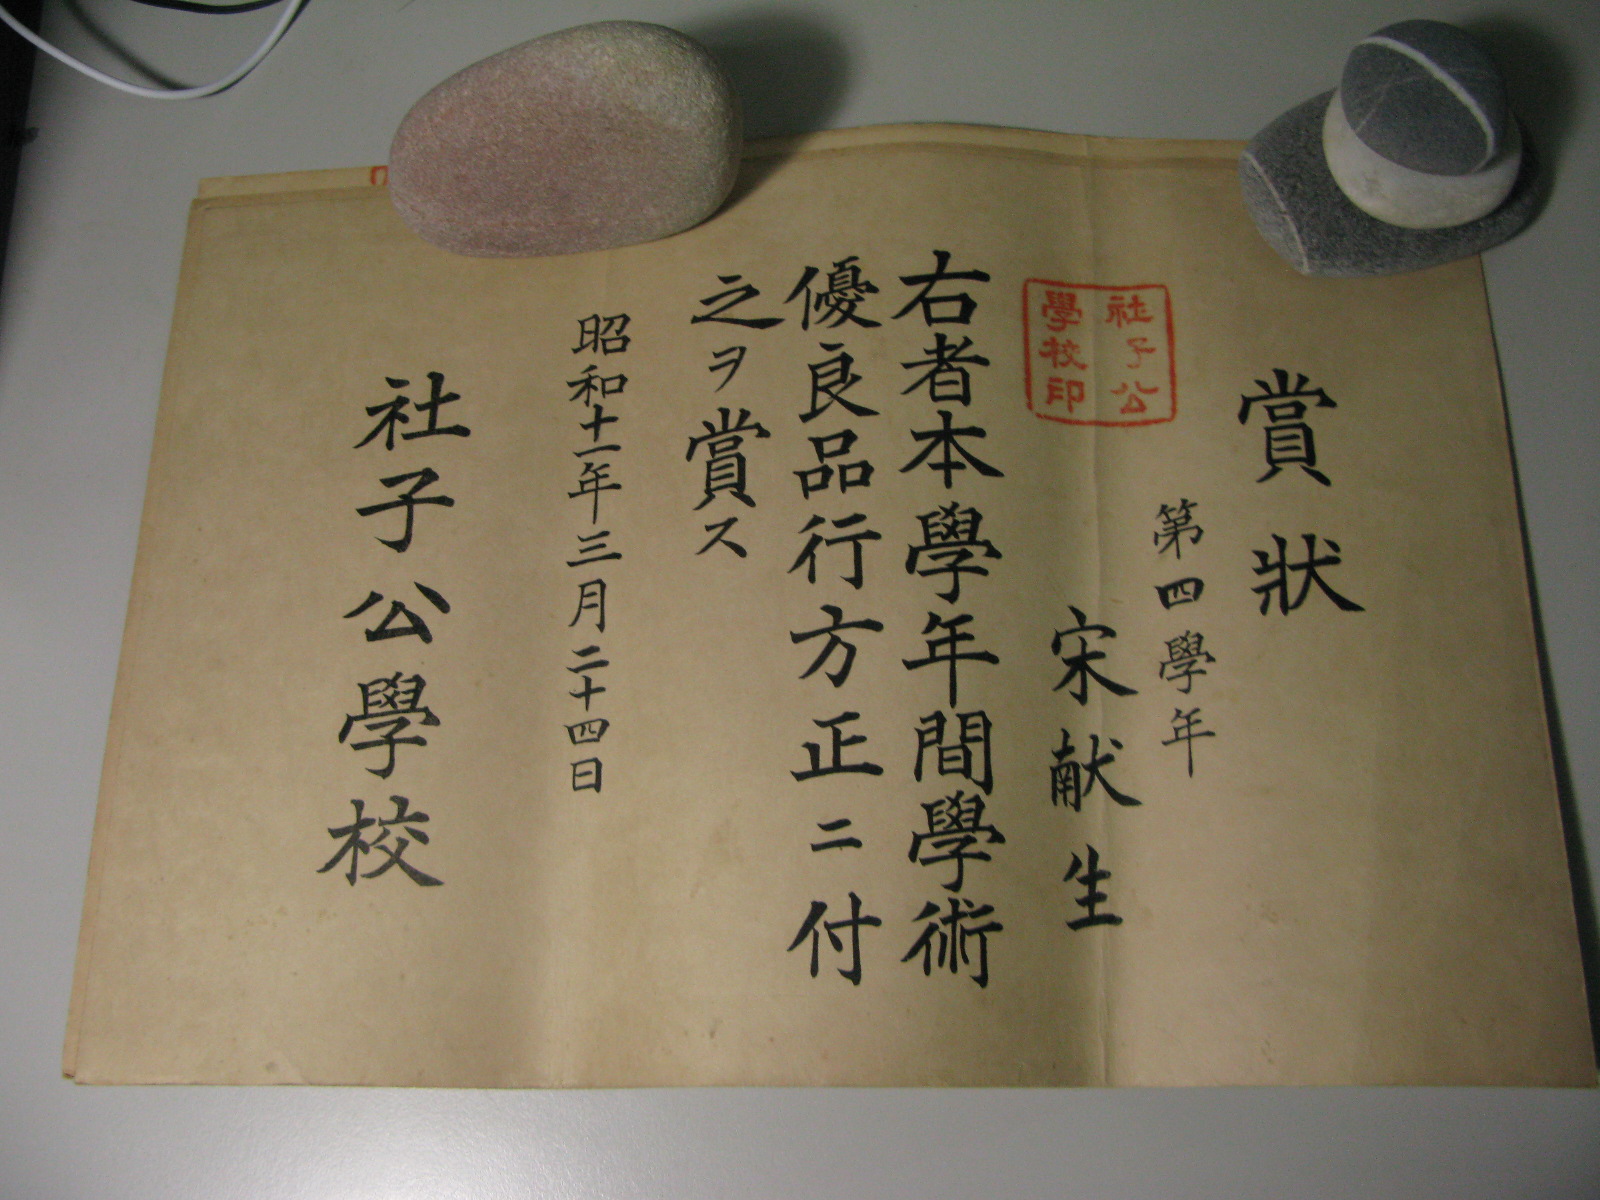 賞狀
第四學年
宋献生
社子公
學校印
右者本學年間學術
優良品行方正ニ付
之ヲ賞ス
昭和十一年三月二十四日
社子公學校